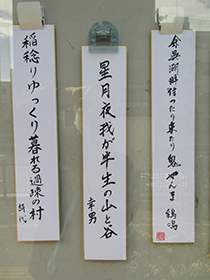 余呉湖畔行ったり来たり鬼やんま
星月夜我が半生の山と谷
幸男
稲稔りゆっくり暮れる過疎の村